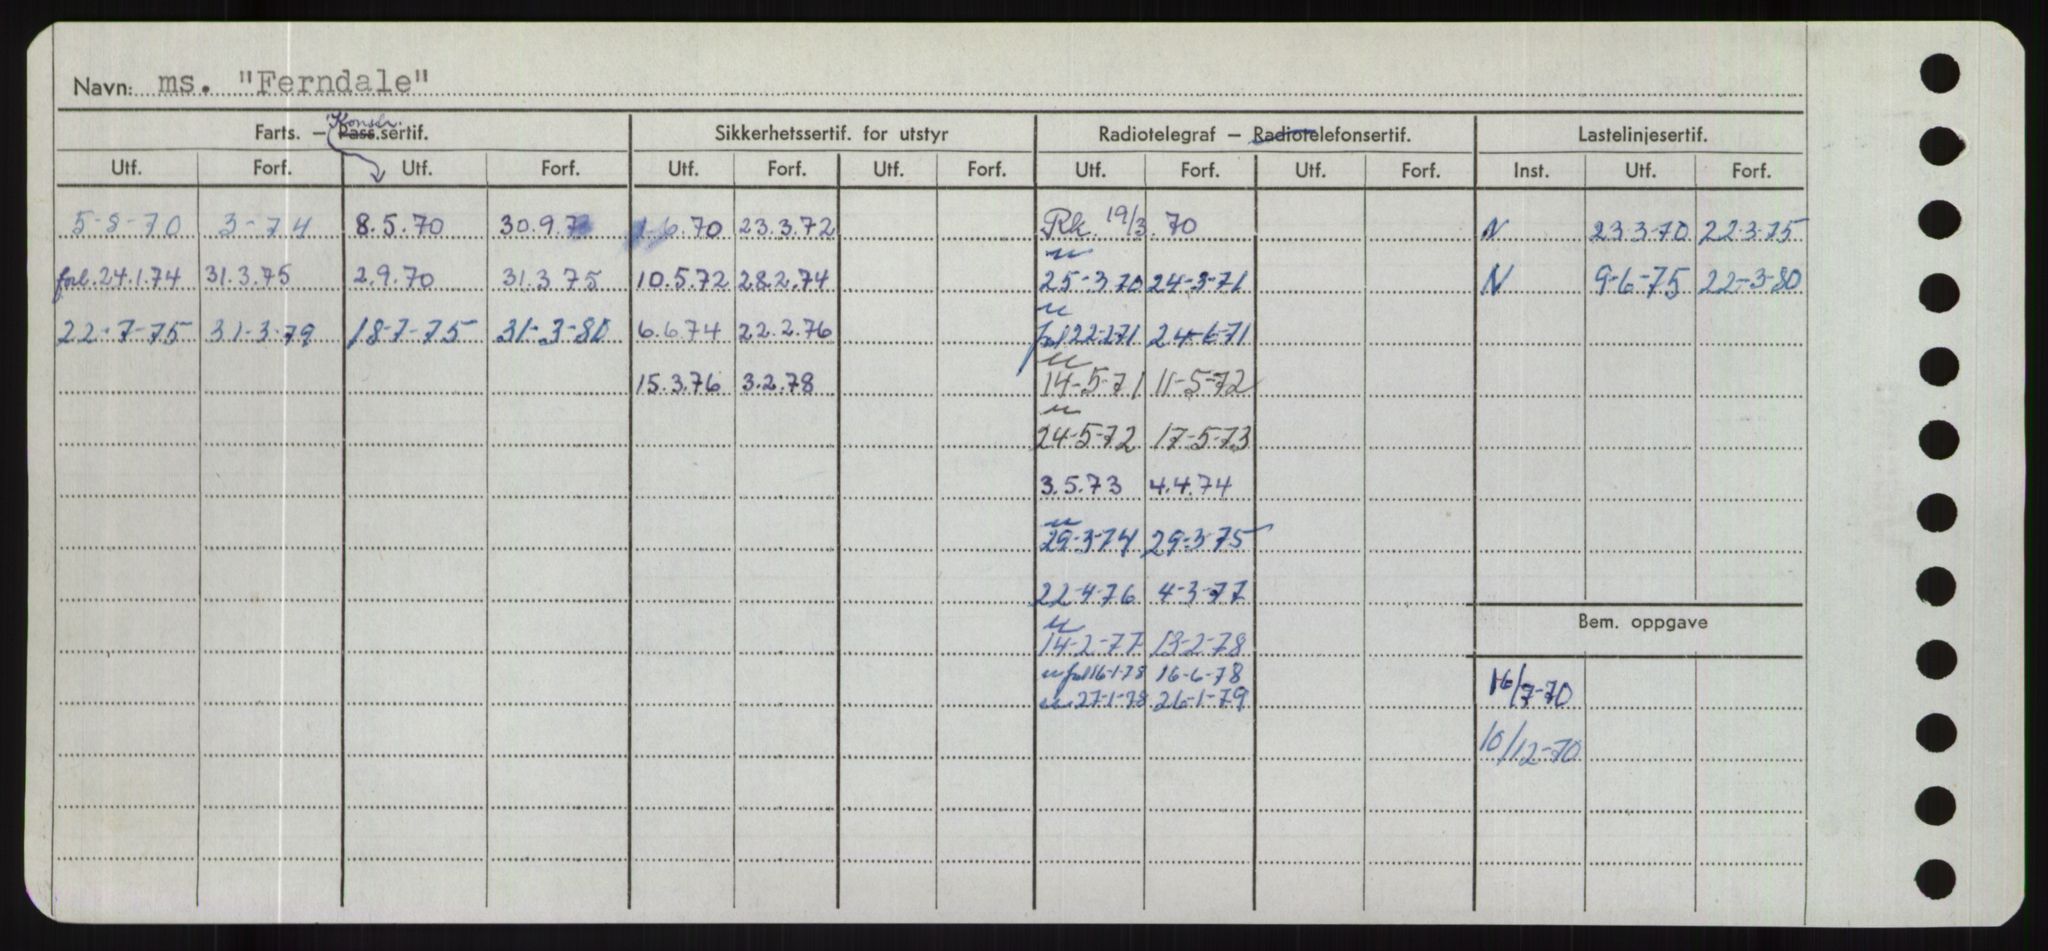 Navn: ms. "Ferndale"
Konstr.
Farts. – Pass.sertif. Sikkerhetssertif. for utstyr Radiotelegraf – Radiotelefonsertif. Lastelinjesertif.
Utf. Forf. Utf. Forf. Utf. Forf. Utf. Forf. Utf. Forf. Utf. Forf. Inst. Utf. Forf.
5-8-70 3-74 8.5.70 30.9.7 6.70 23.3.72 Rk. 19/3.70 N 23-3-70 22-3-75
forl.24.1.74 31.3.75 2.9.70 31.3.75 10.5.72 28.2.74 25-3-70 24-3-71 N 9-6-75 22-3-80
22-7-75 31-3-79 18-7-75 31-3-80 6.6.74 22.2.76 22-2-71 24-6-71
15.3.76 3.2.78 14-5-71 11-5-72
24-5-72 17-5-73
3.5.73 4.4.74
29-3-74 29-3-75
22-4-76 4-3-77
Bem. oppgave
14-2-77 13-2-78
16-1-78 16-6-78
27-1-78 26-1-79
16/7-70
10/12-70